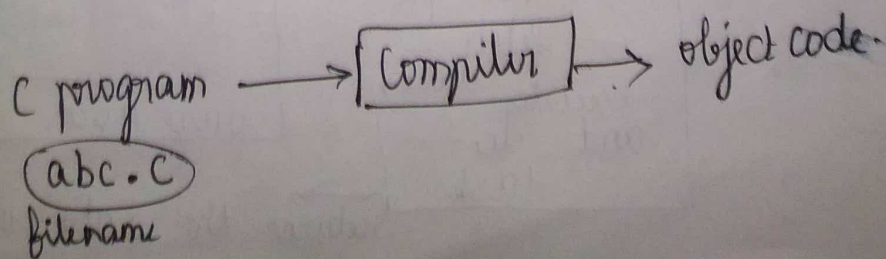 C program → Compiler → object code.
abc.c
filename